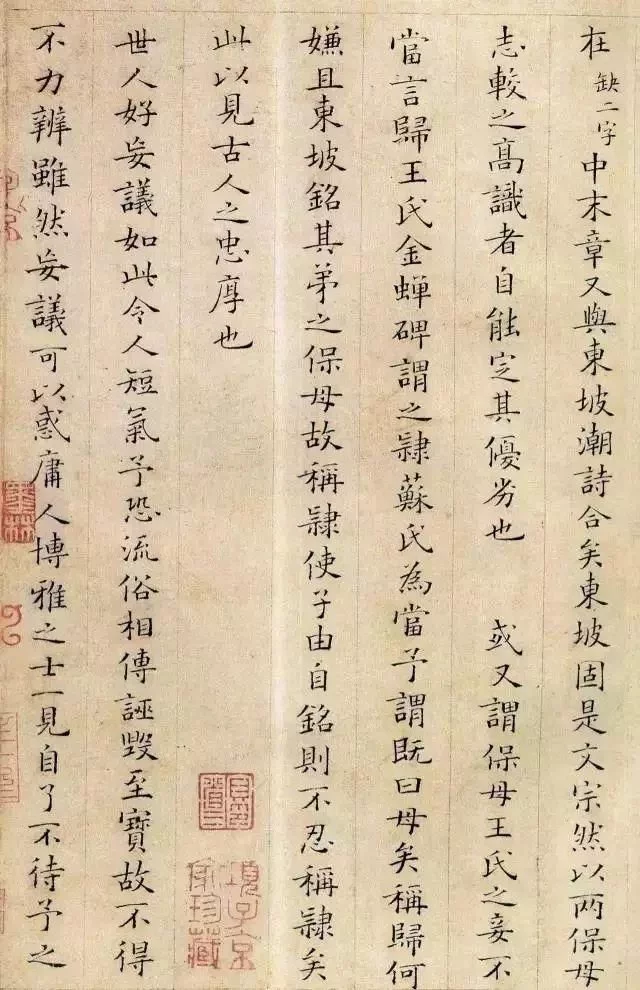 在缺二字中末章又與東坡潮詩合矣東坡固是文宗然以两保母
志較之髙識者自能定其優劣也　或又謂保母王氏之妾不
當言歸王氏金蟬碑謂之隷蘇氏為當予謂既曰母矣稱歸何
嫌且東坡銘其弟之保母故稱隷使子由自銘則不忍稱隷矣
此以見古人之忠厚也
世人好妄議如此令人短氣予恐流俗相傳誣毀至寶故不得
不力辨雖然妄議可以惑庸人博雅之士一見自了不待予之
項子京家珍藏
墨林